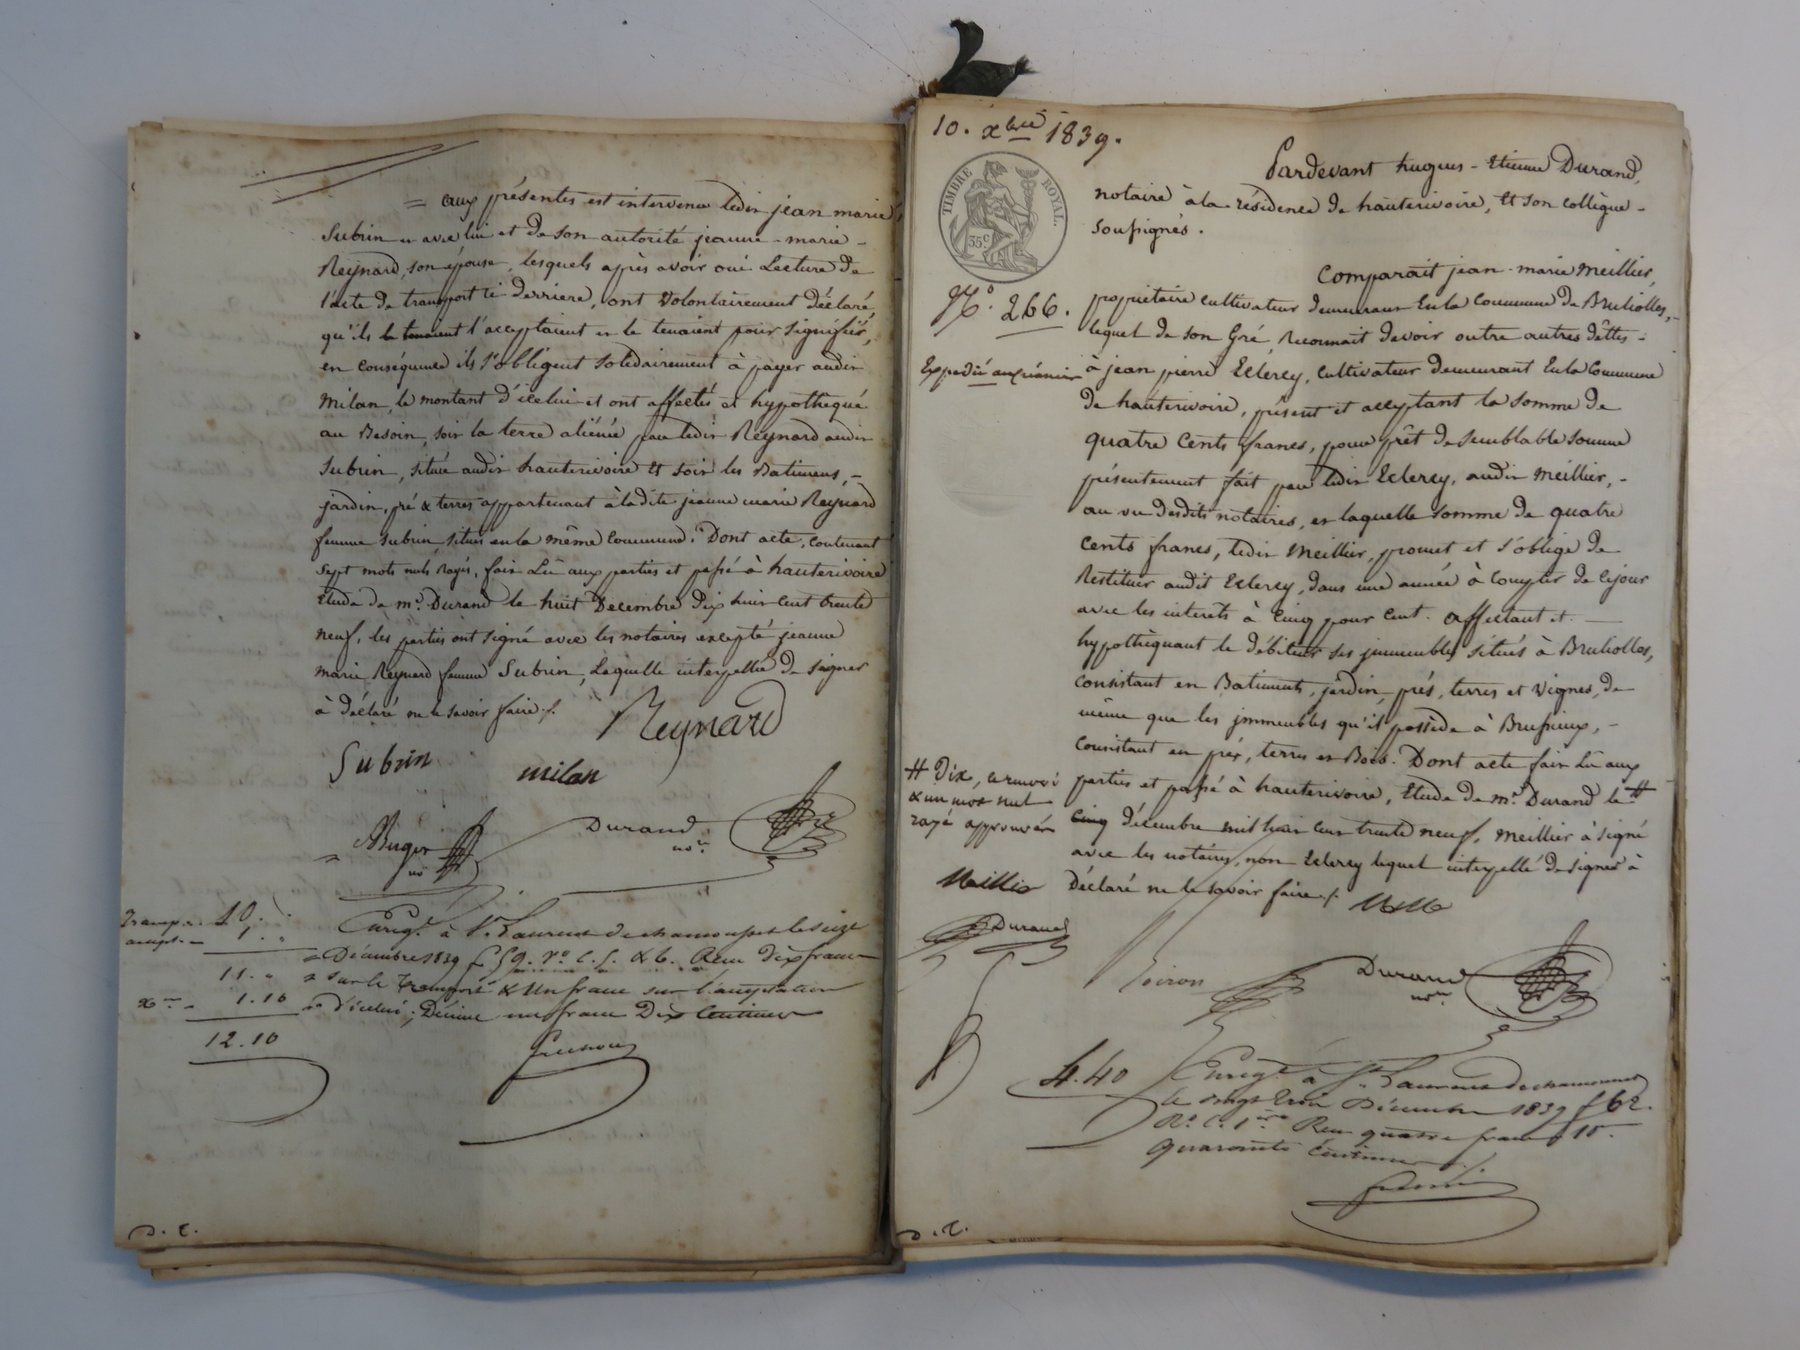 = aux présentes est intervenu ledit jean marie
Subrin et avec lui et de son autorité jeanne-marie -
Reynard, son épouse, lesquels après avoir oui Lecture de
l'acte de transport ci derriere, ont volontairement déclaré,
qu'ils le tenaient l'acceptaient et le tenaient pour signifié,
en conséquence ils s'obligent solidairement à payer audit
Milan, le montant d'icelui et ont affectés et hypothequé
au Besoin, soit la terre aliénée par ledit Reynard audit
Subrin, située audit hauterivoire et soit les Batimens, -
jardin, pré & terres appartenant à la dite jeanne marie Reynard
femme Subrin, situés en la même commune. Dont acte, contenant
sept mots nuls rayés, fait Lû aux parties et passé à hauterivoire
Etude de me. Durand le huit Decembre dix huit cent trente
neuf, les parties ont signé avec les notaires excepté jeanne
marie Reynard femme Subrin, Laquelle interpellée de signer
à déclaré ne le savoir faire ./.
Reynard
Subrin
milan
Durand
nore
Transpt. 10. "
accept. - 1. "
11. "
xme - 1.10
12.10
Enregt. à St. Laurent de chamousset le seize
Décembre 1839 fo 59. Vo. C. 5. & 6. Reçu dix francs
sur le transport & Un franc sur l'acceptation
d'icelui; Décime un franc Dix Centimes
D. E.
10. xbre 1839.
TIMBRE ROYAL.
35c.
No. 266.
Expedié au créancier
Pardevant hugues-Etienne Durand,
notaire à la résidence de hauterivoire, Et son collègue -
soussignés.
Comparait jean-marie Meillier,
propriétaire cultivateur demeurant En la Commune de Brulliolles, -
lequel de son Gré, Reconnait devoir outre autres dêttes -
à jean pierre Eclercy, cultivateur demeurant En la Commune
de hauterivoire, présent et acceptant la somme de
quatre cents francs, pour prêt de semblable somme
présentement fait par ledit Eclercy, audit Meillier, -
au vu desdits notaires, et laquelle somme de quatre
cents francs, ledit Meillier, promet et s'oblige de
Restituer audit Eclercy, dans une année à compter de ce jour
avec les interets à cinq pour cent. affectant et -
hypothèquant le débiteur ses immeubles situés à Brulliolles,
consistant en Batiments, jardin, prés, terres et vignes, de
même que les immeubles qu'il possède à Brussieux, -
consistant en prés, terres et Bois. Dont acte fait Lû aux
parties et passé à hauterivoire, Etude de me. Durand le #
cinq décembre mil huit cent trente neuf, Meillier à signé
avec les notaires, non Eclercy lequel interpellé de signer à
Déclaré ne le savoir faire ./.
# Dix, ce renvoi
& un mot nul
rayé approuvés
Meillie
Durand
Durand
nore
4.40
Enregt. à St. Laurent de chamousset
le vingt trois Décembre 1839 fo 62.
Ro. C. 1ere Reçu quatre francs
quarante Centimes
D. E.